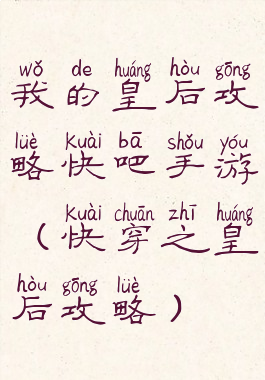 wǒ de huáng hòu gōng
我的皇后攻
lüè Kuài bā shǒu yóu
略快吧手游
Kuài chuān zhī huáng
（快穿之皇
hòu gōng lüè
后攻略）